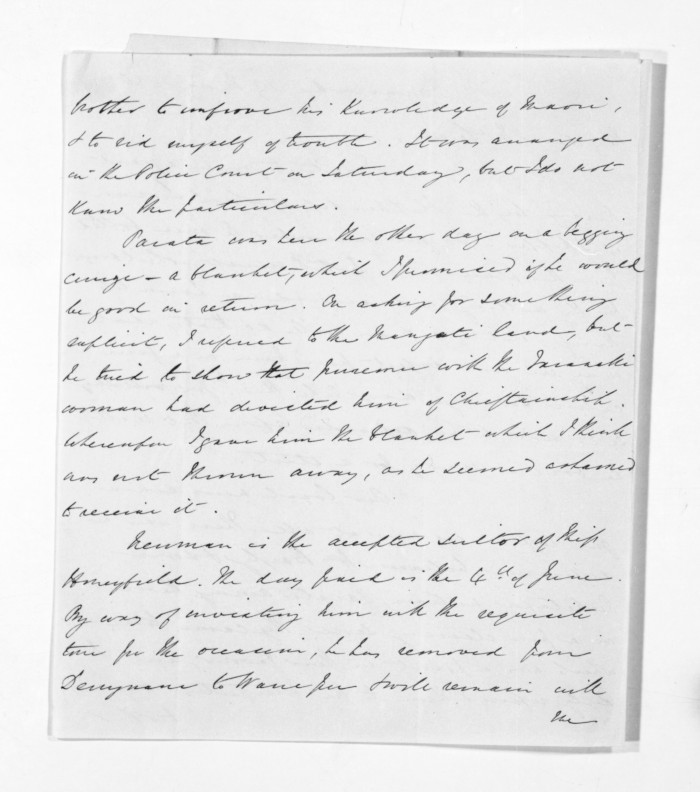 brother to improve his knowledge of Maori,
& to rid myself of trouble. It was arranged
in the Police Court on Saturday, but I do not
know the particulars.
Parata was here the other day on a begging
cruize - a blanket, which I promised if he would
be good in return. On asking for something
explicit, I referred to the Mangati land, but
he tried to show that pusemic with the Taranaki
woman had divested him of Chieftainship.
Whereupon I gave him the blanket which I think
was not thrown away, as he seemed ashamed
to receive it.
Newman is the accepted suitor of Miss
Honeyfield. The day fixed is the 4th of June.
By way of investing him with the requisite
tone for the occasion, he has removed from
Derrynane to & will remain with
me